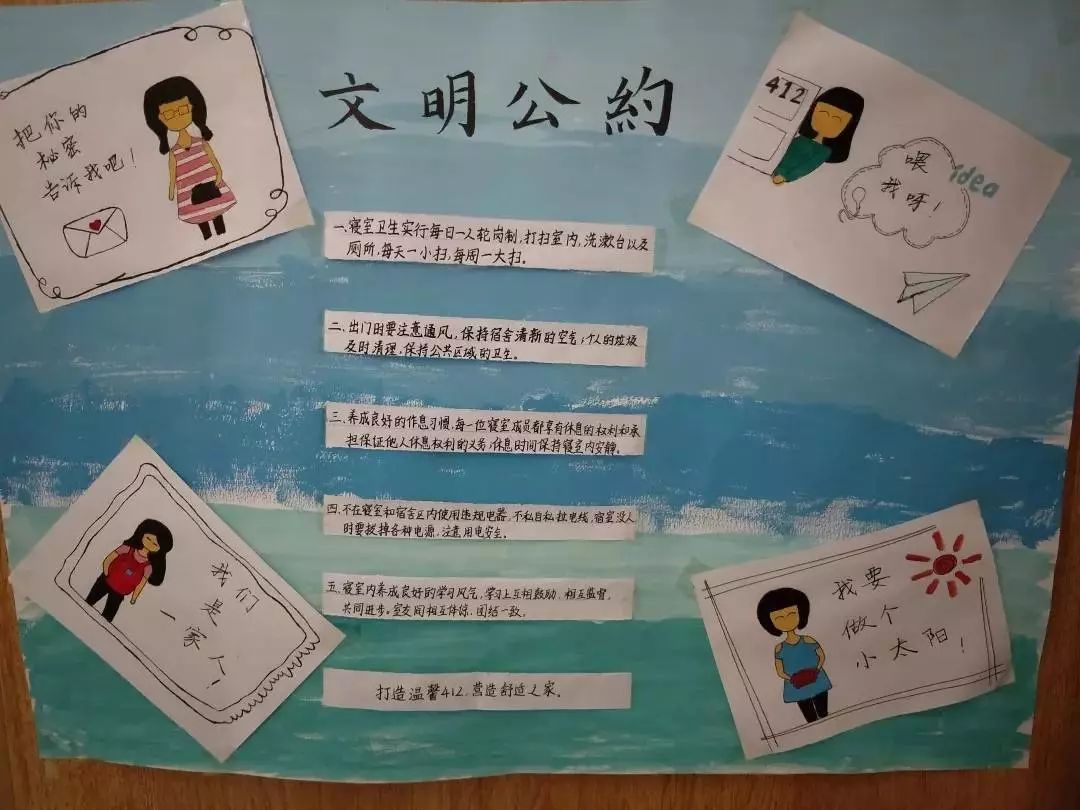 文明公約
把你的
秘密
告诉我吧！
412
喂
我呀！
idea
一、寝室卫生实行每日一人轮岗制，打扫室内，洗漱台以及
厕所，每天一小扫，每周一大扫。
二、出门时要注意通风，保持宿舍清新的空气；个人的垃圾
及时清理，保持公共区域的卫生。
三、养成良好的作息习惯，每一位寝室成员都享有休息的权利和承
担保证他人休息权利的义务，休息时间保持寝室内安静。
四、不在寝室和宿舍区内使用违规电器，不私自私拉电线，宿室没人
时要拔掉各种电源，注意用电安全。
五、寝室内养成良好的学习风气，学习上互相鼓励、相互监督，
共同进步。室友间相互体谅、团结一致。
打造温馨412，营造舒适之家。
我们
是
一家个！
我要
做个
小太阳！